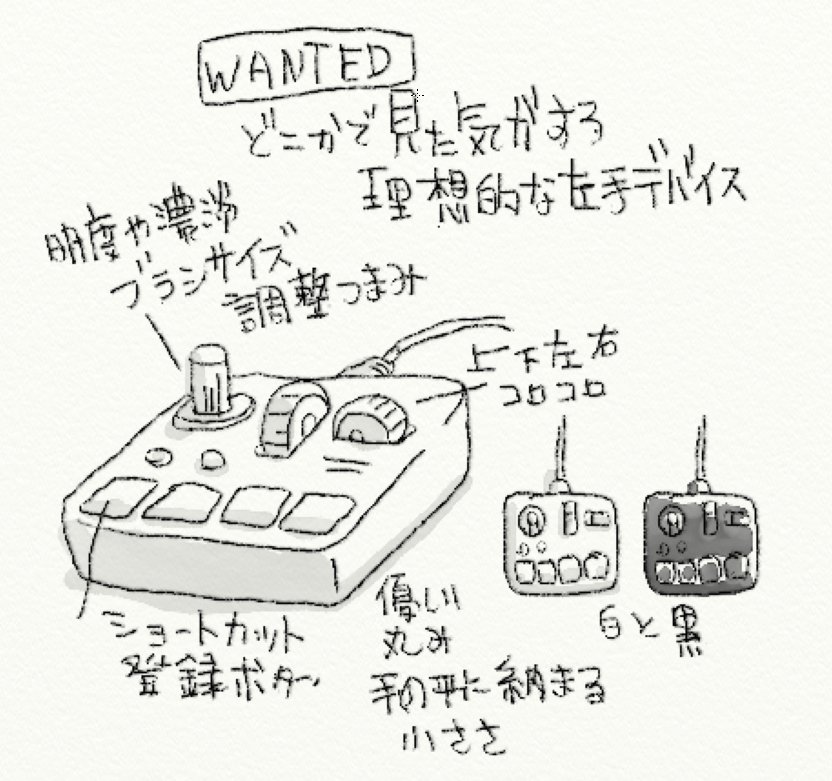 WANTED
どこかで見た気がする
理想的な左手デバイス
明度や濃淡
ブラシサイズ
調整つまみ
上下左右
コロコロ
ショートカット
登録ボタン
優しい
丸み
手の平に納まる
小ささ
白と黒